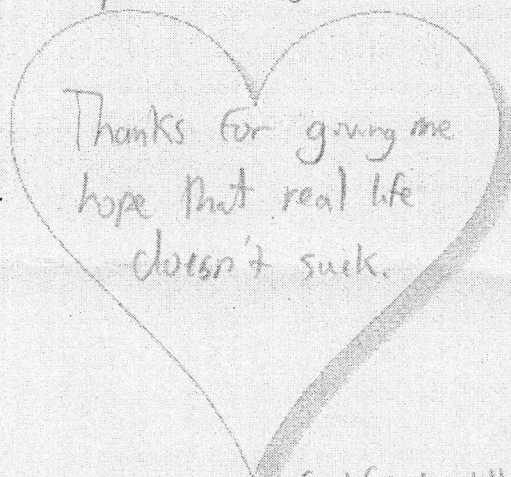 Thanks for giving me
hope that real life
doesn't suck.